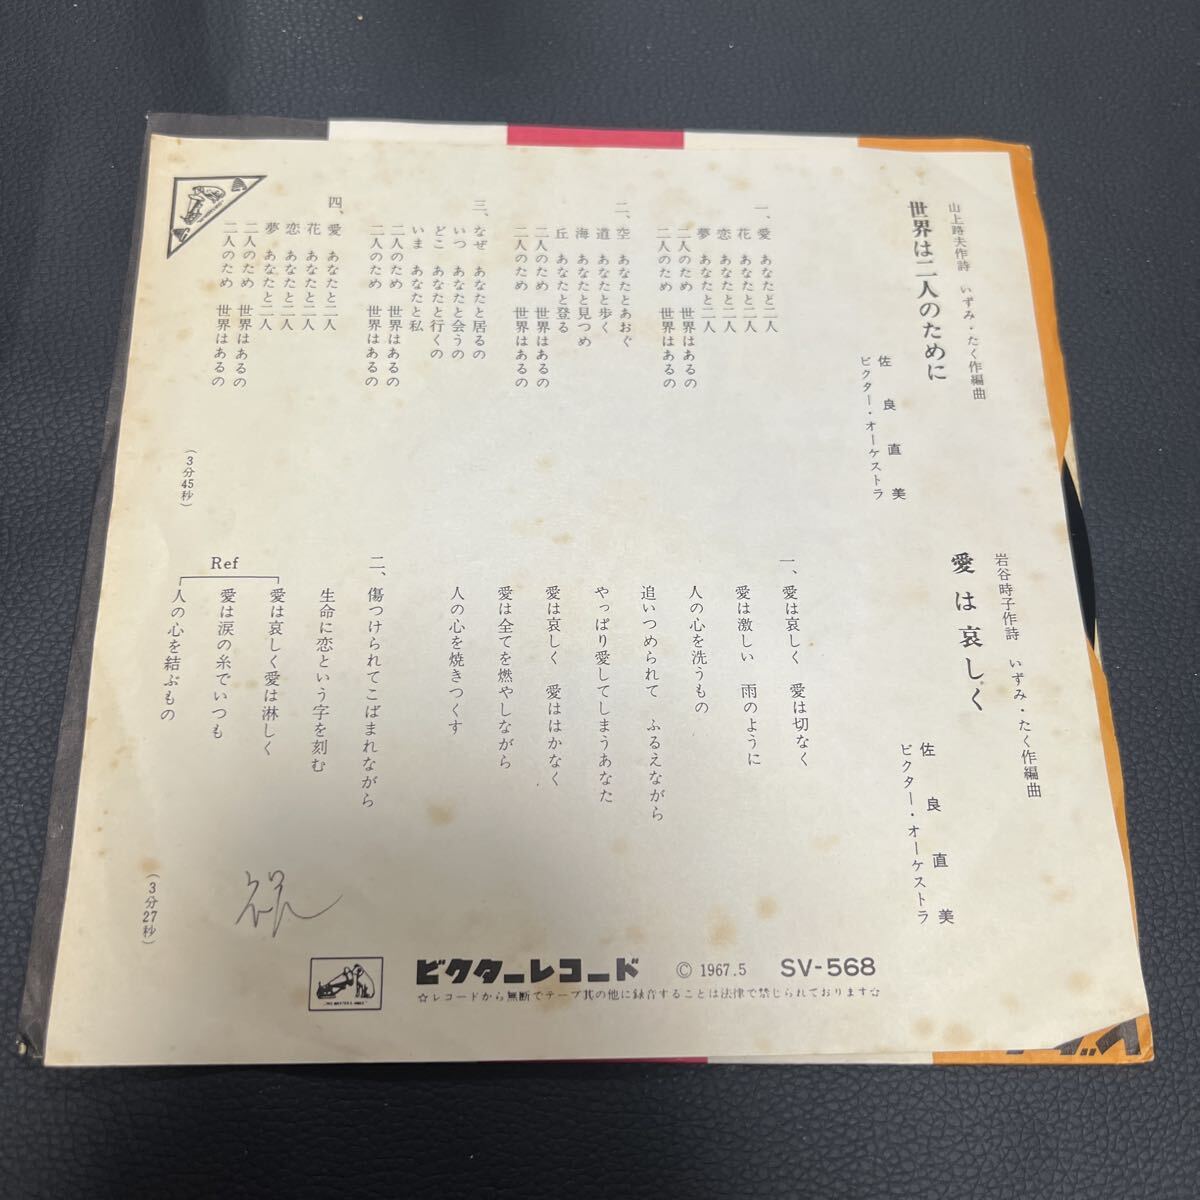 山上路夫作詩 いずみ・たく作編曲
世界は二人のために
佐良直美
ビクター・オーケストラ
一、愛 あなたと二人
花 あなたと二人
恋 あなたと二人
夢 あなたと二人
二人のため 世界はあるの
二人のため 世界はあるの
二、空 あなたとあおぐ
道 あなたと歩く
海 あなたと見つめ
丘 あなたと登る
二人のため 世界はあるの
二人のため 世界はあるの
三、なぜ あなたと居るの
いつ あなたと会うの
どこ あなたと行くの
いま あなたと私
二人のため 世界はあるの
二人のため 世界はあるの
四、愛 あなたと二人
花 あなたと二人
恋 あなたと二人
夢 あなたと二人
二人のため 世界はあるの
二人のため 世界はあるの
(3分45秒)
岩谷時子作詩 いずみ・たく作編曲
愛は哀しく
佐良直美
ビクター・オーケストラ
一、愛は哀しく 愛は切なく
愛は激しい 雨のように
人の心を洗うもの
追いつめられて ふるえながら
やっぱり愛してしまうあなた
愛は哀しく 愛ははかなく
愛は全てを燃やしながら
人の心を焼きつくす
二、傷つけられてこばまれながら
生命に恋という字を刻む
Ref
愛は哀しく愛は淋しく
愛は涙の糸でいつも
人の心を結ぶもの
(3分27秒)
ビクターレコード © 1967.5 SV-568
☆レコードから無断でテープ其の他に録音することは法律で禁じられております☆